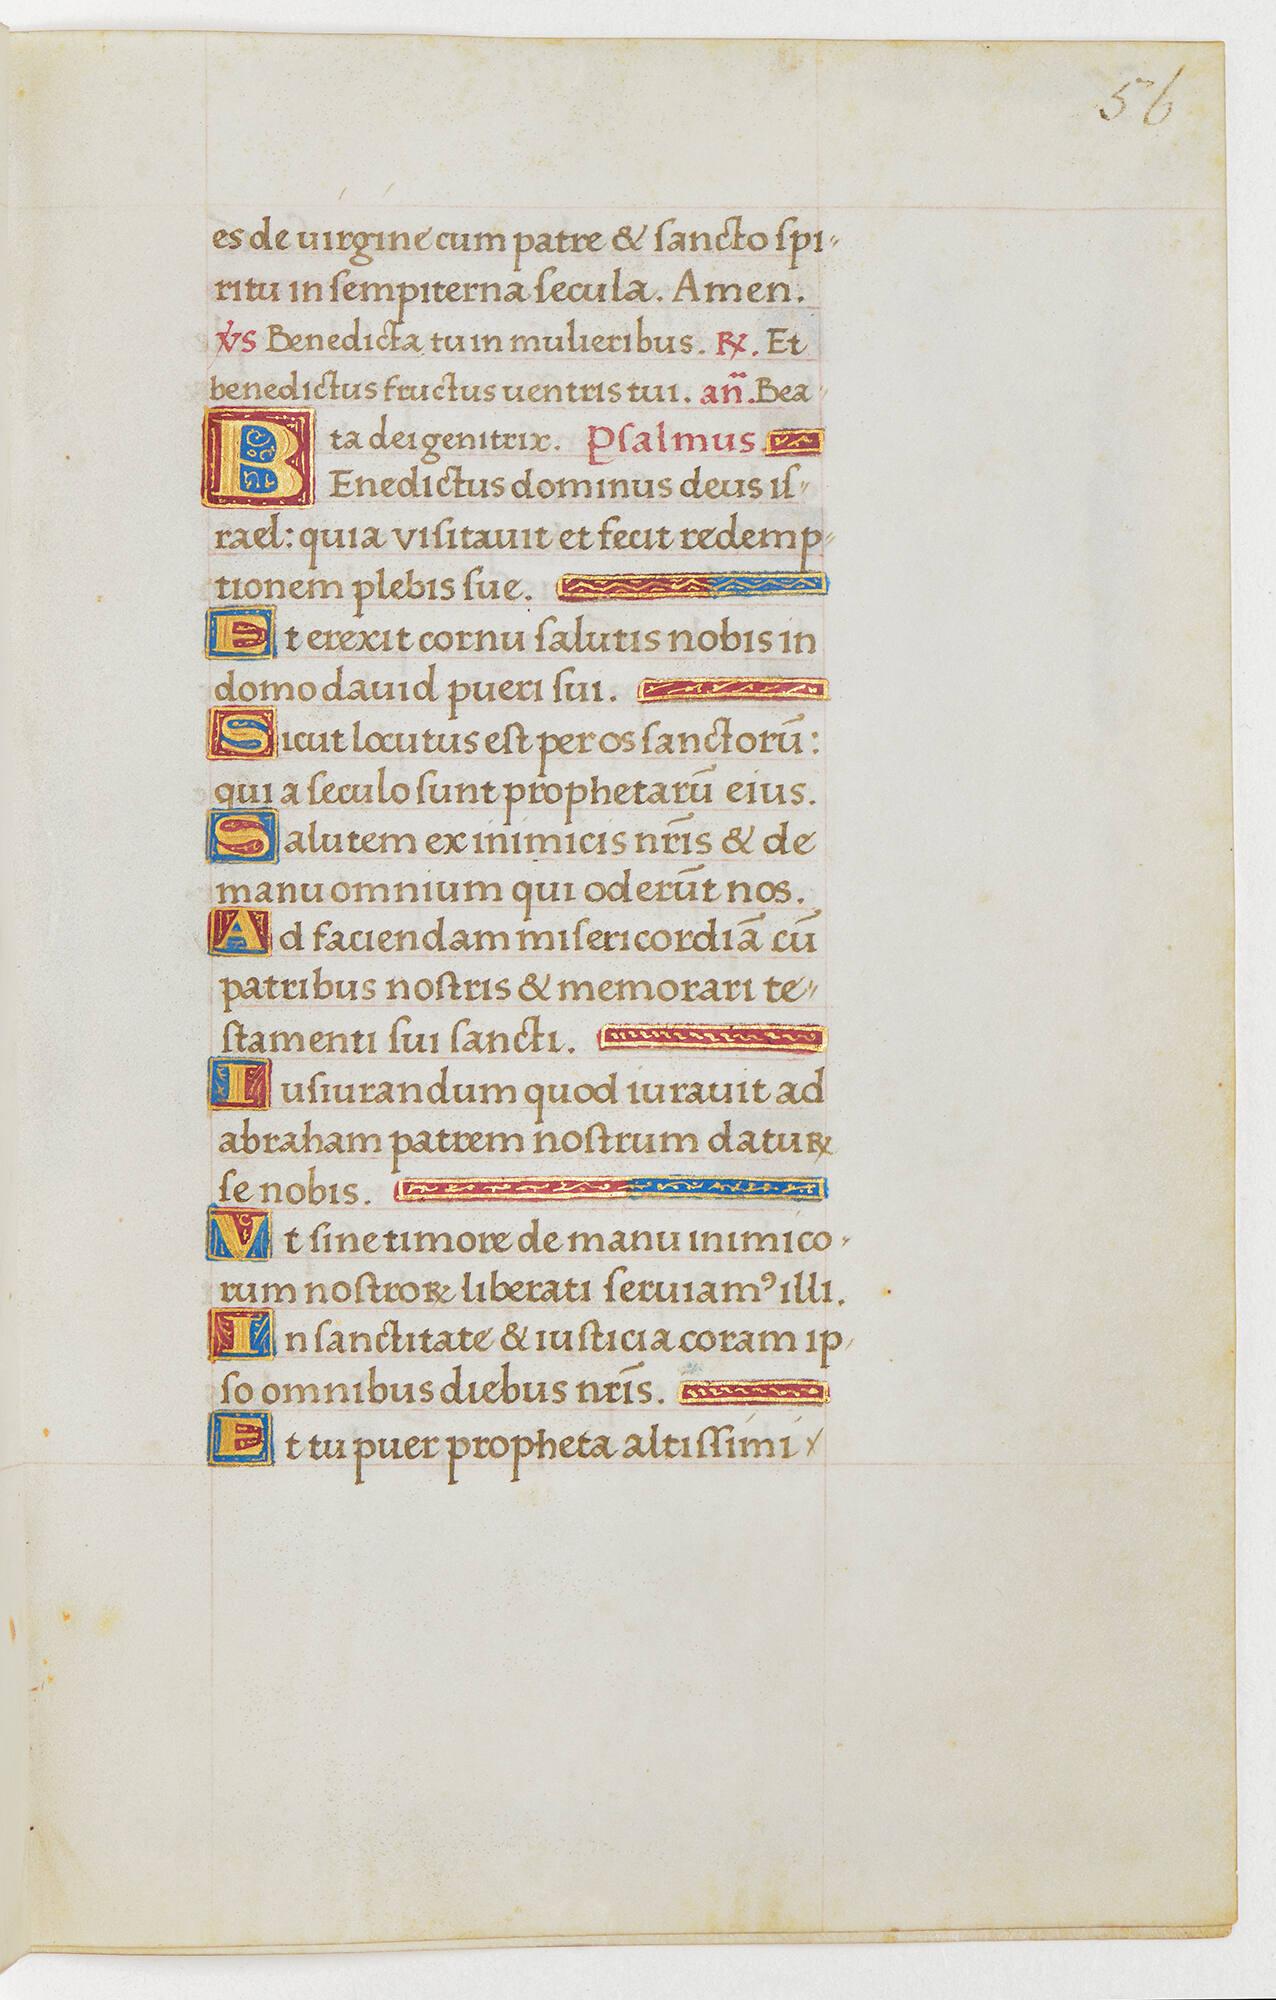 56
es de uirgine cum patre & sancto spi-
ritu in sempiterna secula. Amen.
v̸s Benedicta tu in mulieribus. ℞. Et
benedictus fructus uentris tui. an̄. Bea
ta dei genitrix. Psalmus.
BEnedictus dominus deus is-
rael: quia visitauit et fecit redemp-
tionem plebis sue.
Et erexit cornu salutis nobis in
domo dauid pueri sui.
Sicut locutus est per os sanctorū:
qui a seculo sunt prophetarū eius.
Salutem ex inimicis nr̄is & de
manu omnium qui oderūt nos.
Ad faciendam misericordiā cū
patribus nostris & memorari te-
stamenti sui sancti.
Iusiurandum quod iurauit ad
abraham patrem nostrum daturꝝ
se nobis.
Vt sine timore de manu inimico-
rum nostroꝝ liberati seruiamꝰ illi.
In sanctitate & iusticia coram ip-
so omnibus diebus nr̄is.
Et tu puer propheta altissimi